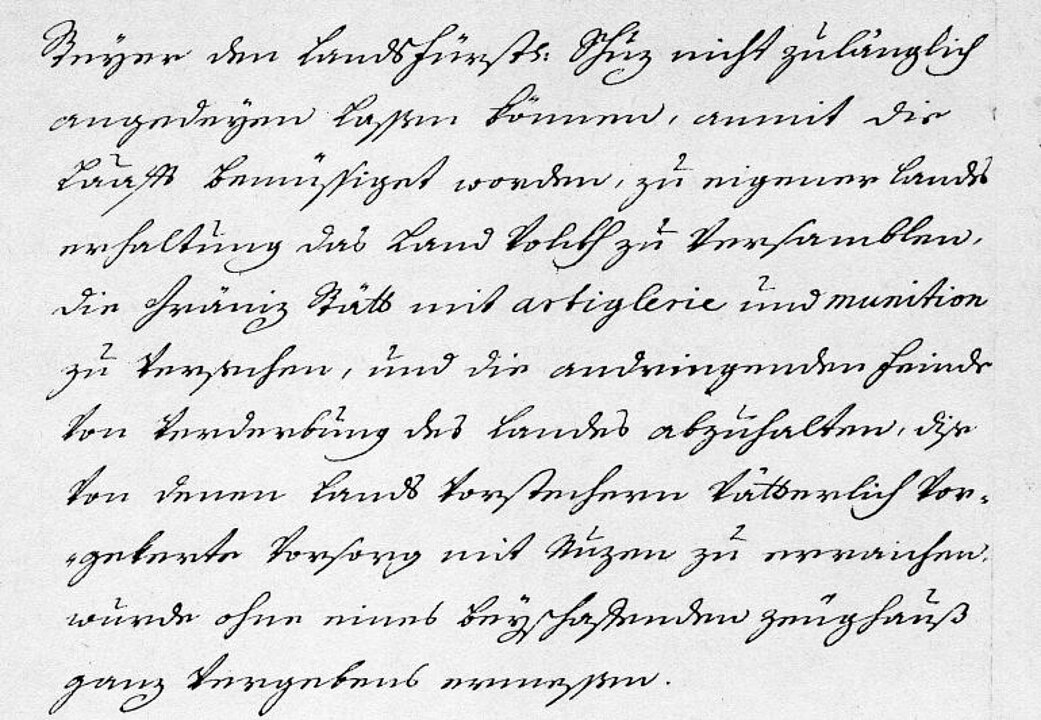 Steyer den Landsfürstl: Schuz nicht zulänglich
angedeyen lassen können, anmit die
bemüssiget worden, zu eigener Lands
erhaltung das Land Volckh zu Versamblen,
die Gräniz Stätt mit artiglerie und munition
zu Versechen, und die andringenden Feinde
Von Verderbung des Landes abzuhalten, dise
Von denen Lands Vorstechern Vätterlich Vor-
-gekerte Vorsorg mit Nuzen zu erraichen,
wurde ohne eines beyschaffenden zeüghauß
ganz Vergebens ermessen.